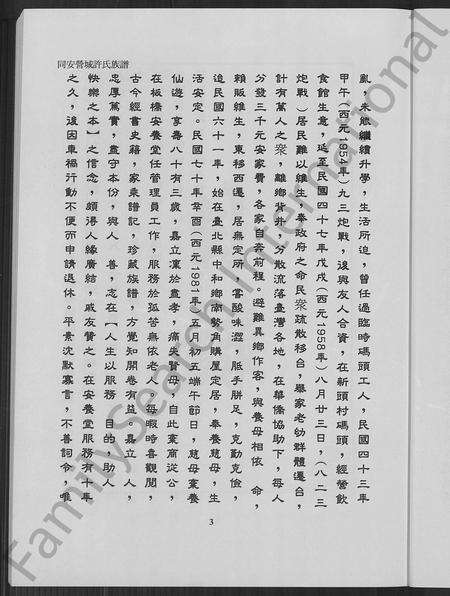 同安營城許氏族譜
亂，未能繼續升學，生活所迫，曾任過臨時碼頭工人，民國四十三年
甲午(西元1954年)九三炮戰，後與友人合資，在新頭村碼頭，經營飲
食館生意，延至民國四十七年戊戌(西元1958年)八月廿三日，(八二三
炮戰)居民難以維生，奉政府之命民眾疏散移台，舉家老幼群體遷台，
計有萬人之眾，離鄉背井，分散流落臺灣各地，在華僑協助下，每人
分發三千元安家費，各家自奔前程。避難異鄉作客，與養母相依　命，
賴販維生，東移西遷，居無定所，嘗酸味澀，胝手胼足，克勤克儉，
迨民國六十一年，始在臺北縣中和鄉南勢角購屋定居，奉養慈母，生
活安定。民國七十年辛酉(西元1981年)五月初五端午節日，慈母棄養
仙遊，享壽八十有三歲，嘉立稟於至孝，痛失賢母，自此棄商從公，
在板橋安養堂任管理員工作，服務於孤苦無依老人，每暇時喜觀閱，
古今經書史籍，家乘譜記，珍藏族譜，方覺知開卷有益。嘉立　人，
忠厚篤實，盡守本份，與人　善，志在【人生以服務　目的，助人
快樂之本】之信念，頗得人緣廣結，戚友贊之。在安養堂服務有十年
之久，後因車禍行動不便而申請退休。平素沈默寡言，不善詞令，唯
3
FamilySearch International